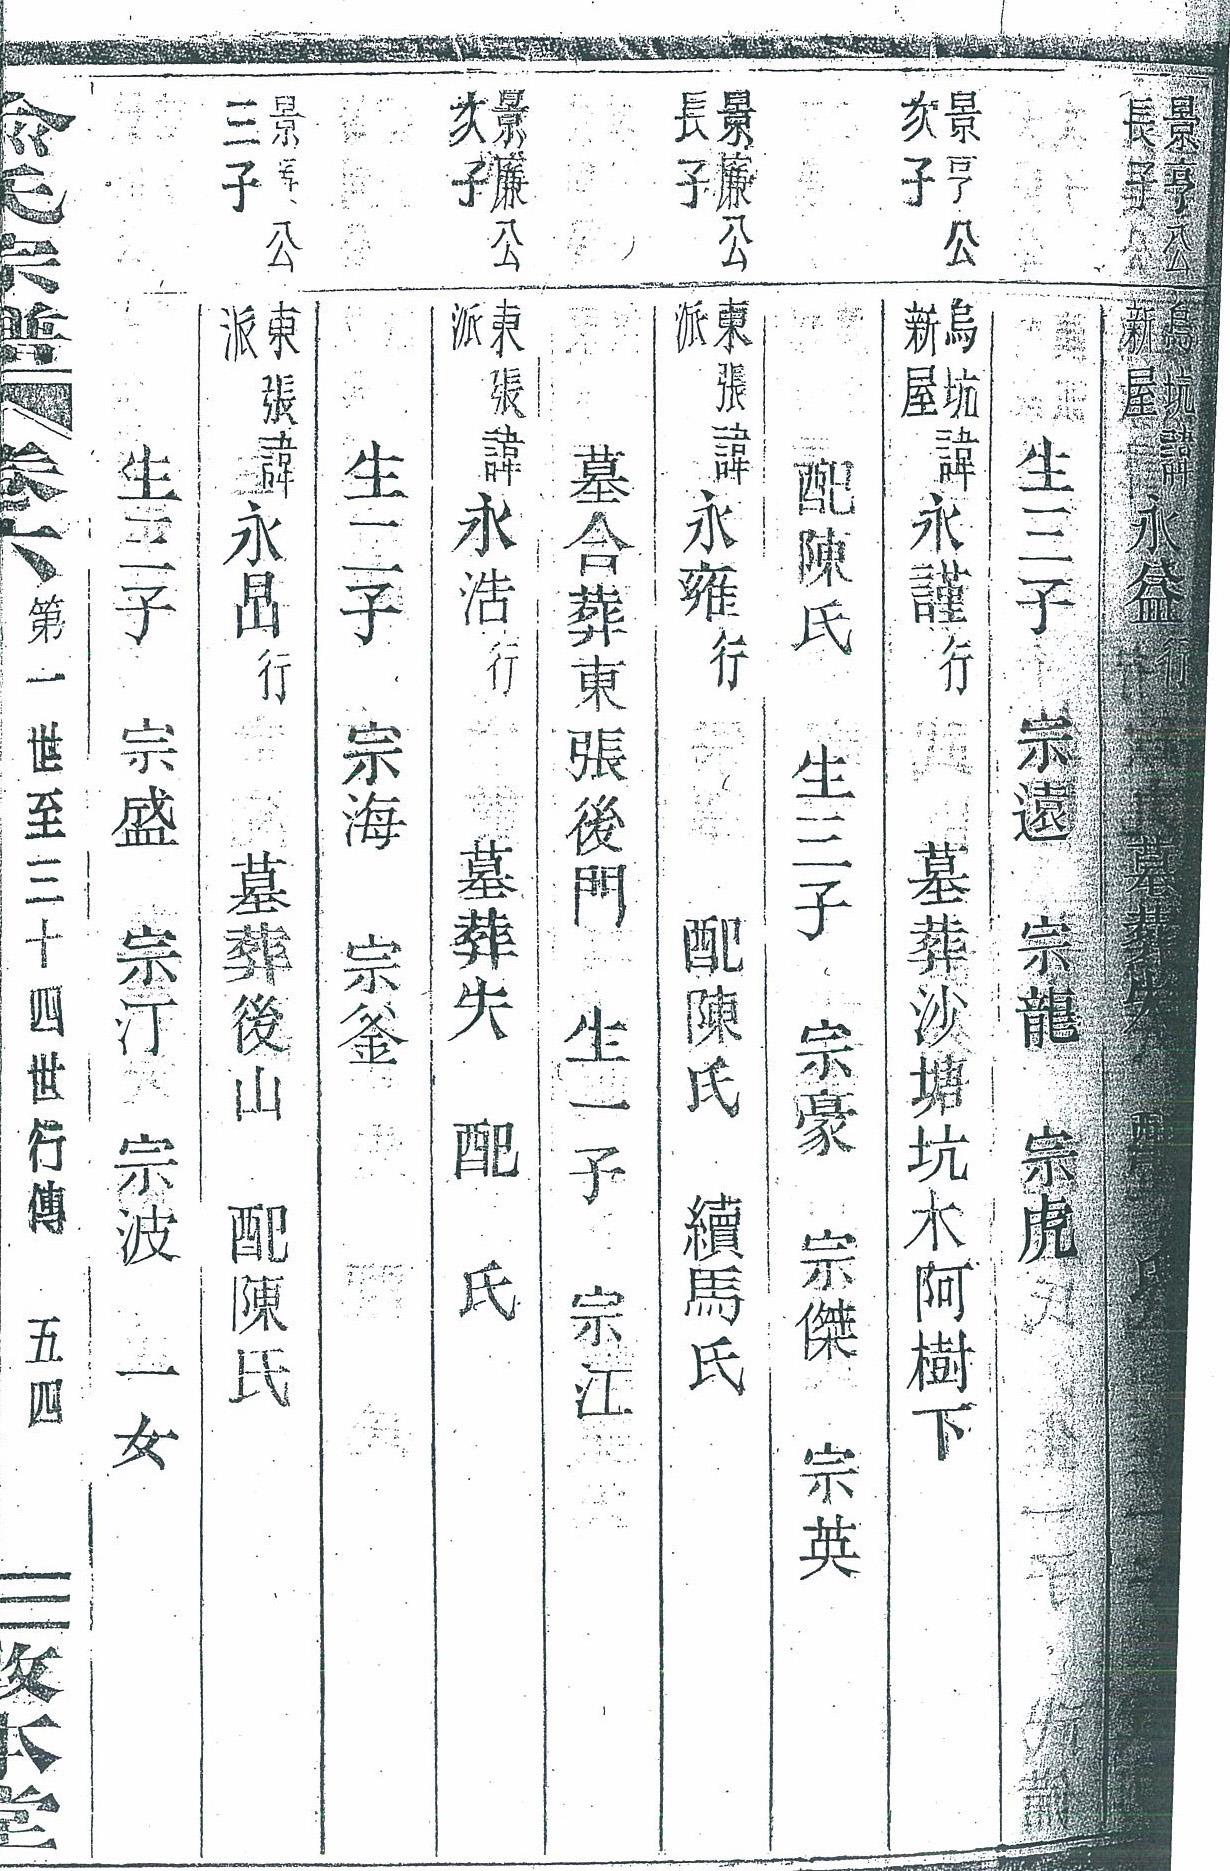 景亨公
長子
烏坑
新屋
諱永益行 墓葬失 配 氏
生三子 宗遠 宗龍 宗虎
景亨公
次子
烏坑
新屋
諱永謹行 墓葬沙塘坑木阿樹下
配陳氏 生三子 宗豪 宗傑 宗英
景廉公
長子
東張
派
諱永雍行 配陳氏 續馬氏
墓合葬東張後門 生一子 宗江
景廉公
次子
東張
派
諱永浩行 墓葬失 配 氏
生二子 宗海 宗釜
景 公
三子
東張
派
諱永昌行 墓葬後山 配陳氏
生三子 宗盛 宗汀 宗波 一女
俞氏宗譜 卷六 第一世至三十四世行傳 五四 敦本堂